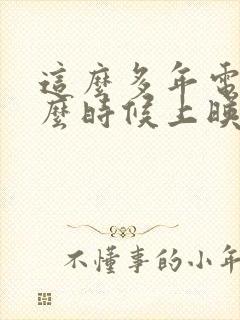 這麼多年電
麼時候上映
不懂事的小年